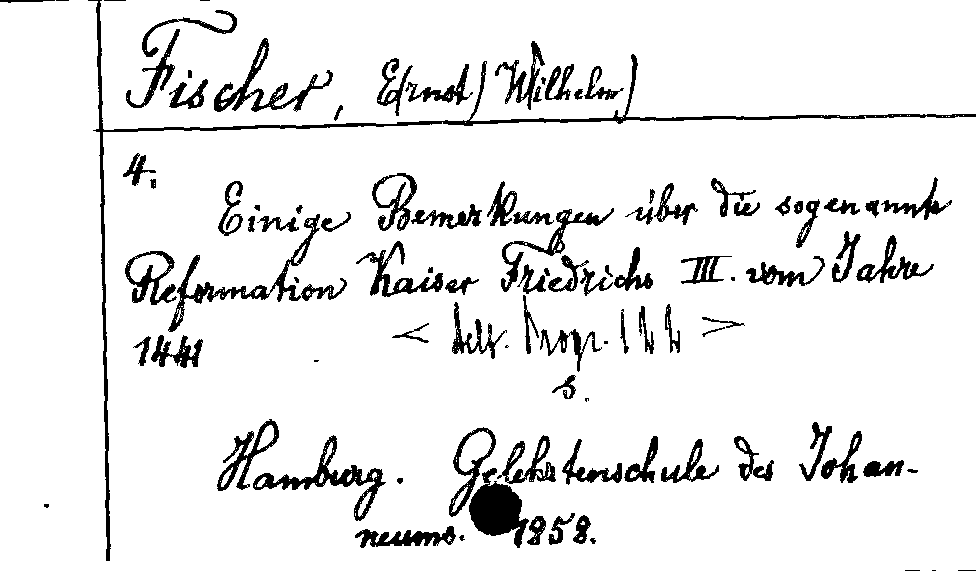 Fischer, E(rnst) W(ilhelm)
4.
Einige Bemerkungen über die sogenannte
Reformation Kaiser Friedrichs III. vom Jahre
1441
s.
Hamburg. Gelehrtenschule des Johan-
neums. 1858.